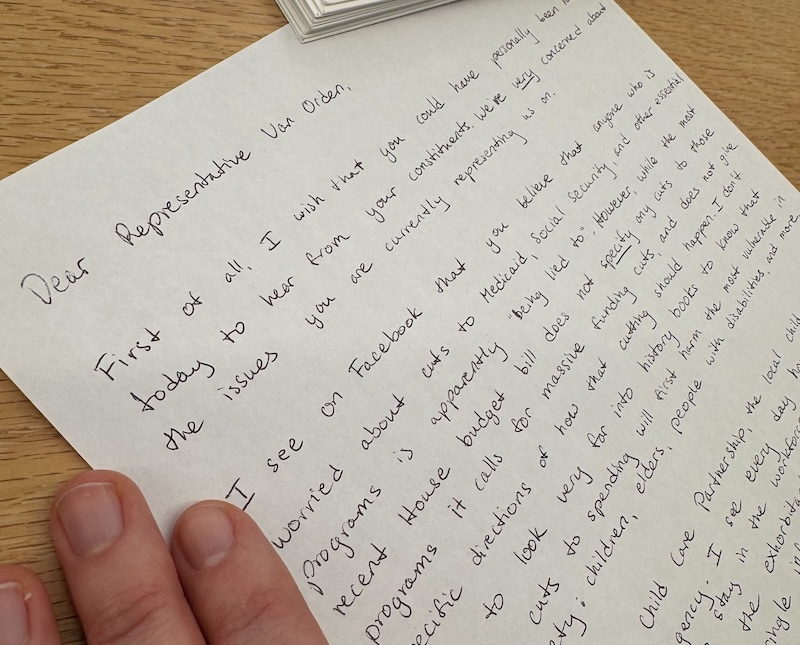 Dear Representative Van Orden,
First of all, I wish that you could have personally been
today to hear from your constituents. We're very concerned about
the issues you are currently representing us on.
I see on Facebook that you believe that anyone who is
worried about cuts to Medicaid, social security, and other essential
programs is apparently "being lied to". However, while the most
recent House budget bill does not specify any cuts to those
programs it calls for massive funding cuts, and does not give
directions of how that cutting should happen. I don't
to look very far into history books to know that
cuts to spending will first harm the most vulnerable in
children, elders, people with disabilities, and more.
Child Care Partnership, the local child
I see every day
stay in the workforce
the exhorbita